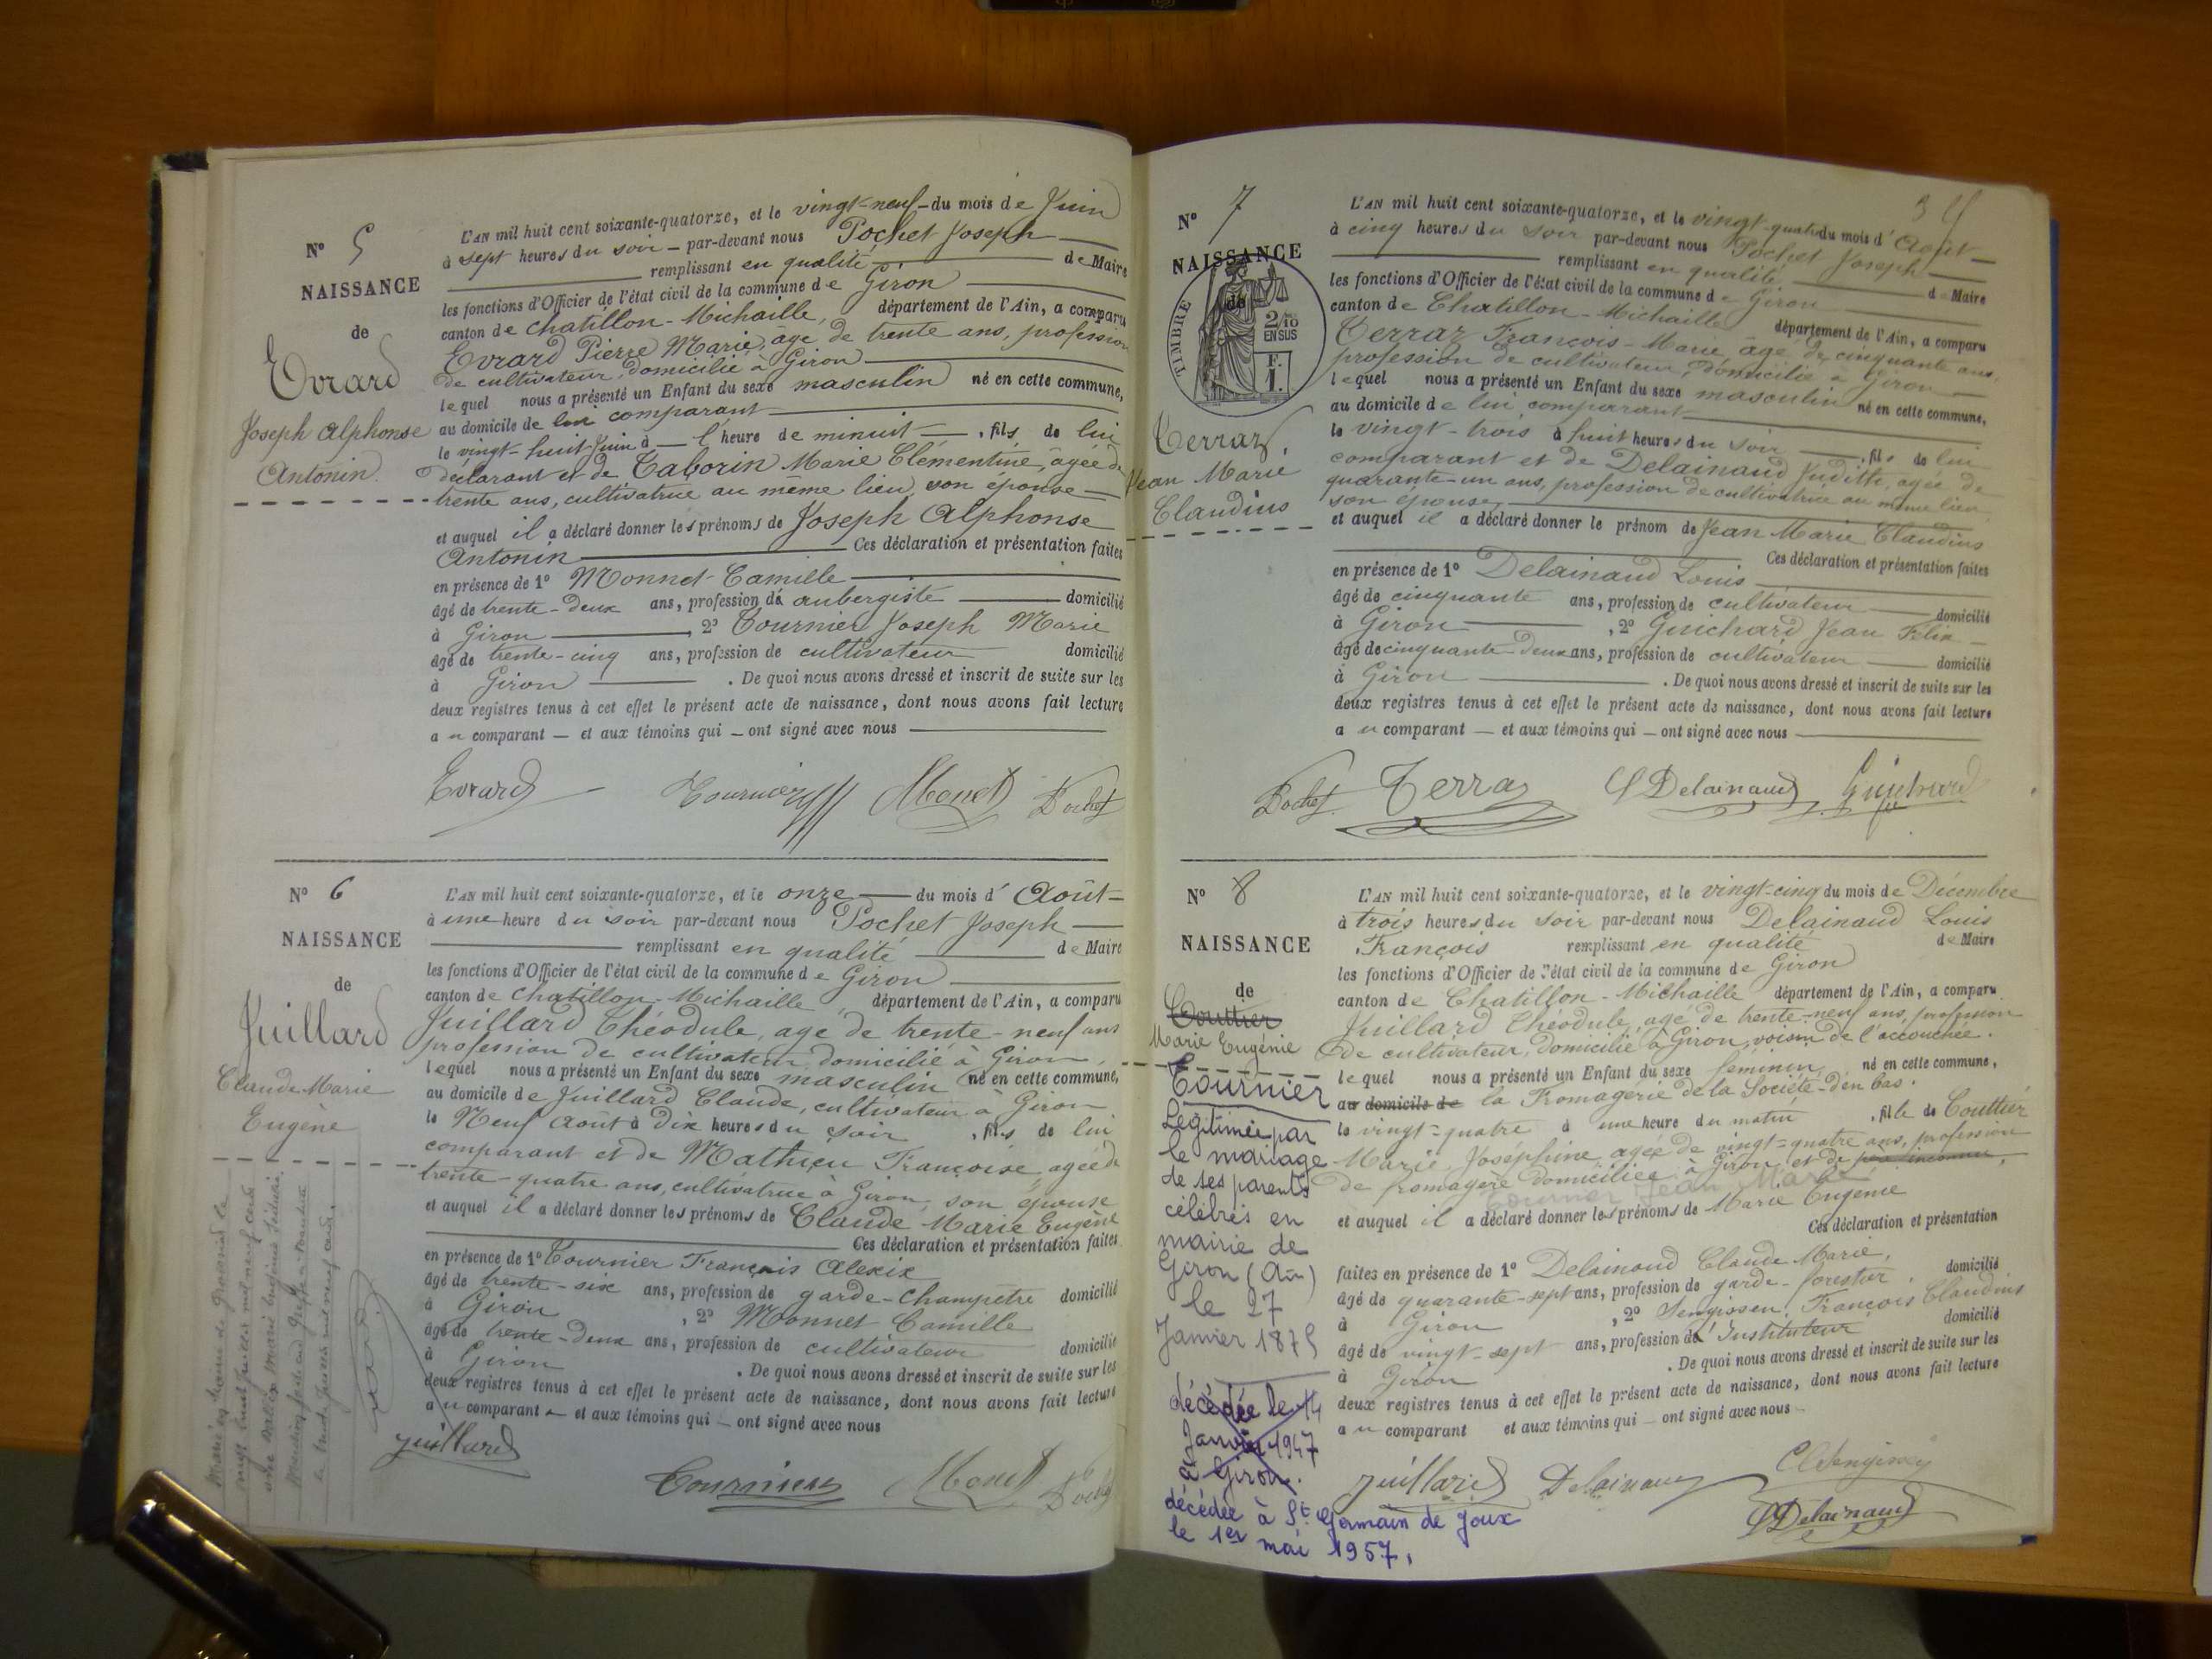 N° 5
NAISSANCE
de
Evrard
Joseph Alphonse
Antonin.
L'AN mil huit cent soixante-quatorze, et le vingt-neuf du mois de Juin
à sept heures du soir par-devant nous Pochet Joseph
remplissant en qualité de Maire
les fonctions d'Officier de l'état civil de la commune de Giron
canton de Chatillon-Michaille, département de l'Ain, a comparu
Evrard Pierre Marie, âgé de trente ans, profession
de cultivateur, domicilié à Giron
lequel nous a présenté un Enfant du sexe masculin né en cette commune,
au domicile de lui comparant
le vingt-huit Juin à l'heure de minuit, fils de lui
déclarant et de Taborin Marie Clémentine, âgée de
trente ans, cultivatrice au même lieu, son épouse
et auquel il a déclaré donner les prénoms de Joseph Alphonse
Antonin Ces déclaration et présentation faites
en présence de 1° Monnet Camille
âgé de trente-deux ans, profession de aubergiste domicilié
à Giron, 2° Tournier Joseph Marie
âgé de trente-cinq ans, profession de cultivateur domicilié
à Giron. De quoi nous avons dressé et inscrit de suite sur les
deux registres tenus à cet effet le présent acte de naissance, dont nous avons fait lecture
au comparant et aux témoins qui ont signé avec nous
Evrard Tournier Monet Pochet
N° 6
NAISSANCE
de
Juillard
Claude Marie
Eugène
L'AN mil huit cent soixante-quatorze, et le onze du mois d'Août
à une heure du soir par-devant nous Pochet Joseph
remplissant en qualité de Maire
les fonctions d'Officier de l'état civil de la commune de Giron
canton de Chatillon-Michaille, département de l'Ain, a comparu
Juillard Théodule, agé de trente-neuf ans
profession de cultivateur domicilié à Giron,
lequel nous a présenté un Enfant du sexe masculin né en cette commune,
au domicile de Juillard Claude, cultivateur à Giron
le Neuf Août à dix heures du soir, fils de lui
comparant et de Mathieu Françoise, agée de
trente-quatre ans, cultivatrice à Giron, son épouse
et auquel il a déclaré donner les prénoms de Claude Marie Eugène
Ces déclaration et présentation faites
en présence de 1° Tournier François Alexis
âgé de trente-six ans, profession de garde-champêtre domicilié
à Giron, 2° Monnet Camille
âgé de trente-deux ans, profession de cultivateur domicilié
à Giron. De quoi nous avons dressé et inscrit de suite sur les
deux registres tenus à cet effet le présent acte de naissance, dont nous avons fait lecture
au comparant et aux témoins qui ont signé avec nous
Juillard
Tournier Monet
N° 7
NAISSANCE
de
TIMBRE
2/10
EN SUS
F.
1.
Terraz
Jean Marie
Claudius
L'AN mil huit cent soixante-quatorze, et le vingt-quatre du mois d'Août
à cinq heures du soir par-devant nous Pochet Joseph
remplissant en qualité de Maire
les fonctions d'Officier de l'état civil de la commune de Giron
canton de Chatillon-Michaille département de l'Ain, a comparu
Terraz François-Marie, âgé de cinquante ans,
profession de cultivateur, domicilié à Giron
lequel nous a présenté un Enfant du sexe masculin né en cette commune,
au domicile de lui comparant
le vingt-trois à huit heures du soir, fils de lui
comparant et de Delainaud Judith, agée de
quarante-un ans, profession de cultivatrice au même lieu,
son épouse
et auquel il a déclaré donner le prénom de Jean Marie Claudius
Ces déclaration et présentation faites
en présence de 1° Delainaud Louis
âgé de cinquante ans, profession de cultivateur domicilié
à Giron, 2° Guichard Jean Félix
âgé de cinquante-deux ans, profession de cultivateur domicilié
à Giron. De quoi nous avons dressé et inscrit de suite sur les
deux registres tenus à cet effet le présent acte de naissance, dont nous avons fait lecture
au comparant et aux témoins qui ont signé avec nous
Pochet Terraz Delainaud Guichard
N° 8
NAISSANCE
de
Couttier
Marie Eugénie
Tournier
Légitimée par
le mariage
de ses parents
célébrés en
mairie de
Giron (Ain)
le 27
Janvier 1875
décédée le 14
Janvier 1947
à Giron.
décédée à St Germain de Joux
le 1er mai 1957.
L'AN mil huit cent soixante-quatorze, et le vingt-cinq du mois de Décembre
à trois heures du soir par-devant nous Delainaud Louis
François remplissant en qualité de Maire
les fonctions d'Officier de l'état civil de la commune de Giron
canton de Chatillon-Michaille département de l'Ain, a comparu
Juillard Théodule, agé de trente-neuf ans, profession
de cultivateur, domicilié à Giron, voisin de l'accouchée.
lequel nous a présenté un Enfant du sexe féminin, né en cette commune,
au domicile de la Fromagerie de la Société-d'en bas.
le vingt-quatre à une heure du matin, fille de Couttier
Marie Joséphine agée de vingt-quatre ans, profession
de fromagère domiciliée à Giron et de père inconnu.
Tournier Jean Marie
et auquel il a déclaré donner les prénoms de Marie Eugénie
Ces déclaration et présentation
faites en présence de 1° Delainaud Claude Marie,
âgé de quarante-sept ans, profession de garde-forestier, domicilié
à Giron, 2° François Claudius
âgé de vingt-sept ans, profession d'Instituteur domicilié
à Giron. De quoi nous avons dressé et inscrit de suite sur les
deux registres tenus à cet effet le présent acte de naissance, dont nous avons fait lecture
au comparant et aux témoins qui ont signé avec nous
Juillard Delainaud
Delainaud